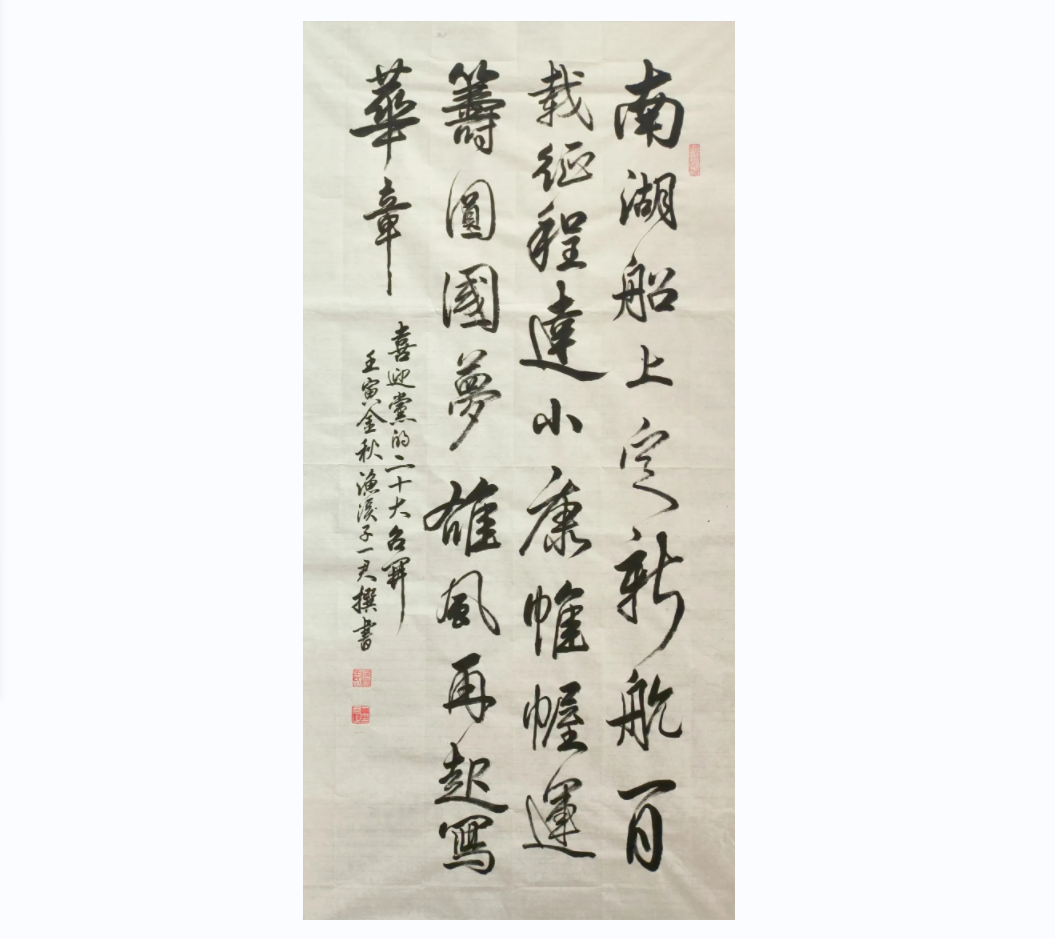 南湖船上定新航百
載征程達小康帷幄運
籌圓國夢雄風再起寫
華章
喜迎黨的二十大召開
壬寅金秋漁溪子一君撰書